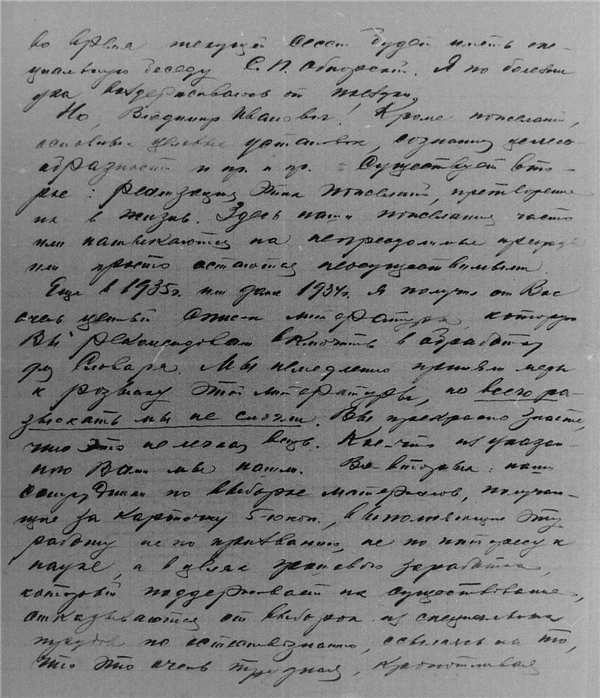 во время текущей сессии будет иметь спе-
циальную беседу С. П. Обнорский. Я по болезни
пока воздерживаюсь от поездки.
Но, Владимир Иванович! Кроме пожеланий,
основных целевых установок, сознания целесо-
образности и пр. и пр. существует вто-
рое: реализация этих пожеланий, претворение
их в жизнь. Здесь наши пожелания часто
или натыкаются на непреодолимые преграды
или просто остаются неосуществимыми.
Еще в 1935г. или даже 1934г. я получил от Вас
очень ценный список литературы, которую
Вы рекомендовали включить в обработку
для Словаря. Мы немедленно приняли меры
к розыску этой литературы, но всего ра-
зыскать мы не смогли. Вы прекрасно знаете,
что это не легкая вещь. Кое-что из указан-
ного Вами мы нашли. Во вторых: наши
сотрудники по выборке материалов, получаю-
щие за карточку 5-10 коп., выполняющие эту
работу не по призванию, не по интересу к
науке, а в целях грошового заработка,
который поддерживает их существование,
отказываются от выборок из специальных
трудов по естествознанию, ссылаясь на то,
что это очень трудная, кропотливая